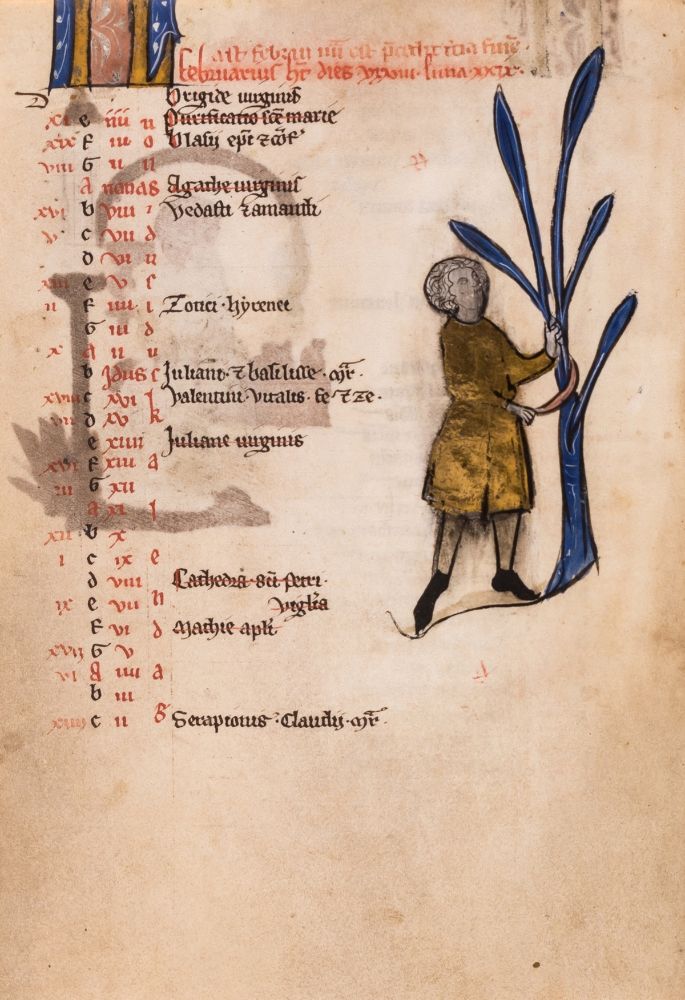 februarius ht dies xxviii luna xxix
Brigide virginis
xi e iiii n Purificatio sce marie
xix f iii o Blasii epi ⁊ cof
viii G ii n
A nonas Agathe virginis
xvi b viii i Vedasti ⁊ amandi
v c vii d
d vi n
xiii e v s
ii f iiii i Zotici · hyrenei
G iii d
x A ii u
b Idus s Juliani · ⁊ basilisse · mr
xviii c xvi l Valentini vitalis · fe ⁊ ze ·
vii d xv k
e xiiii Juliane virginis
xv f xiii a
G xii
A xi l
xii b x
i c ix e
d viii Cathedra sci petri ·
ix e vii n vigilia
f vi d Mathie apli
xvii G v
vi A iiii a
b iii
xiiii c ii g Seraptonis · Claudii · mr ·